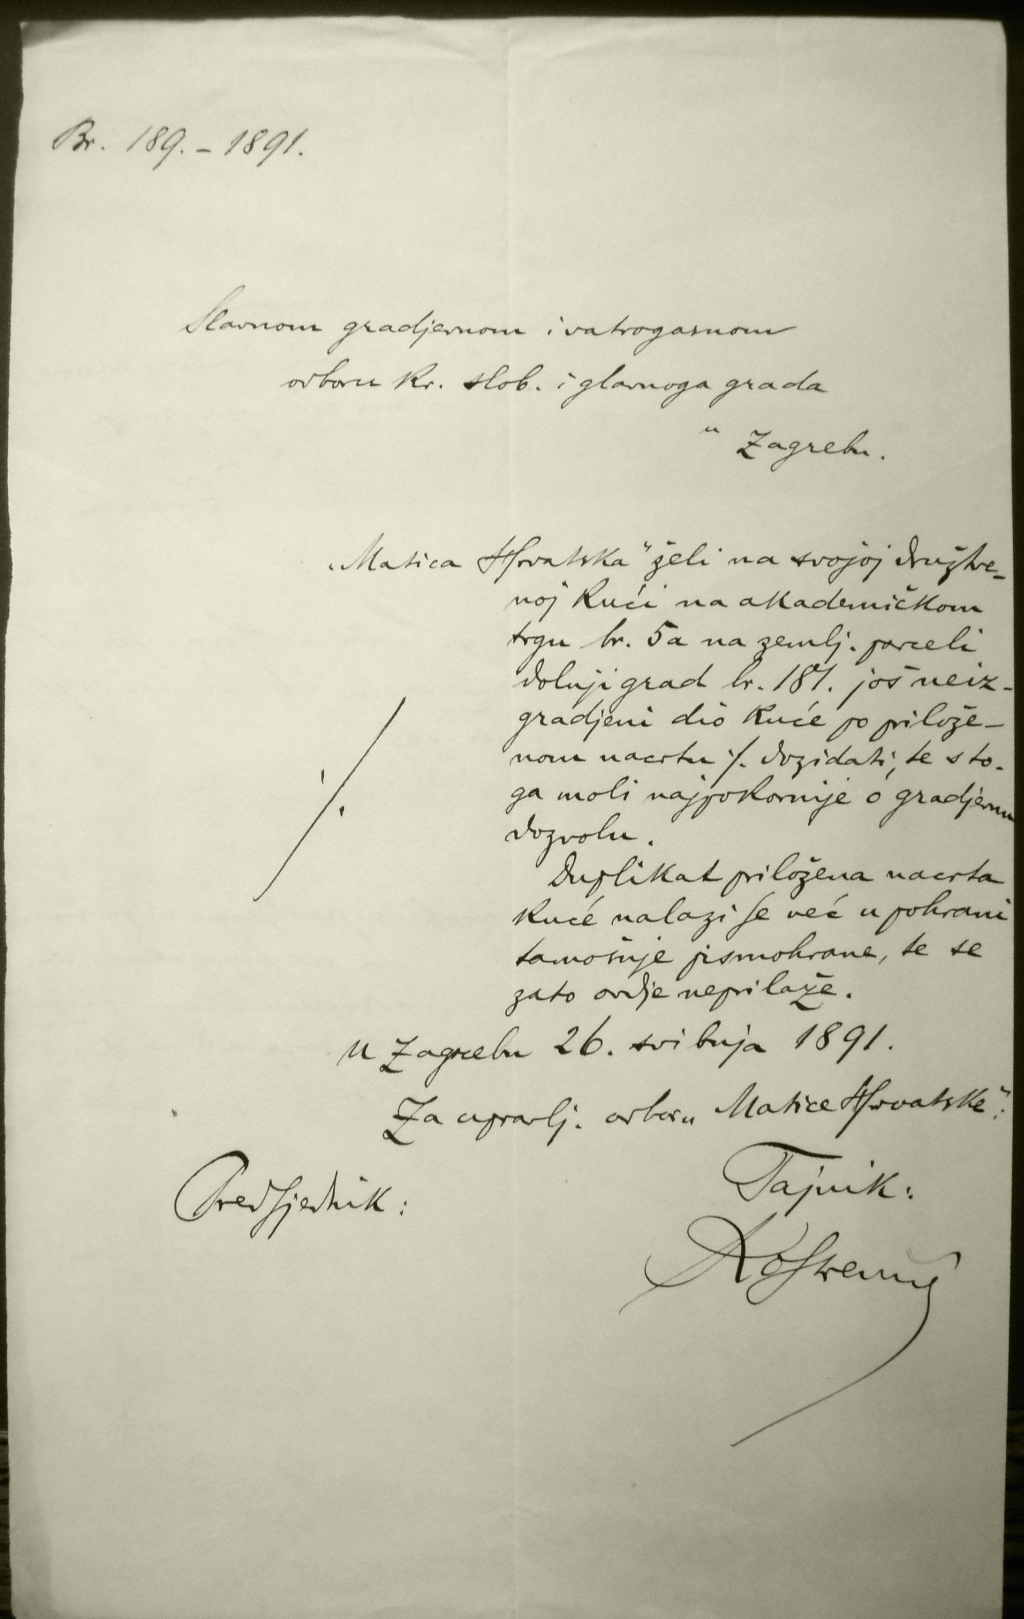 Br. 189. - 1891.
Slavnom gradjevnom i vatrogasnom
odboru kr. slob. i glavnoga grada
u Zagrebu.
„Matica Hrvatska" želi na svojoj družtve-
noj kući na akademičkom
trgu br. 5a na zemlj. parceli
dolnji grad br. 187. još neiz-
gradjeni dio kuće po prilože-
nom nacrtu ·/. dozidati, te sto-
·/.
ga moli najpokornije o gradjevnu
dozvolu.
Duplikat priložena nacrta
kuće nalazi se već u pohrani
tamošnje pismohrane, te se
zato ovdje neprilaže.
U Zagrebu 26. svibnja 1891.
Za upravlj. odbor „Matice Hrvatske":
Predsjednik: Tajnik: